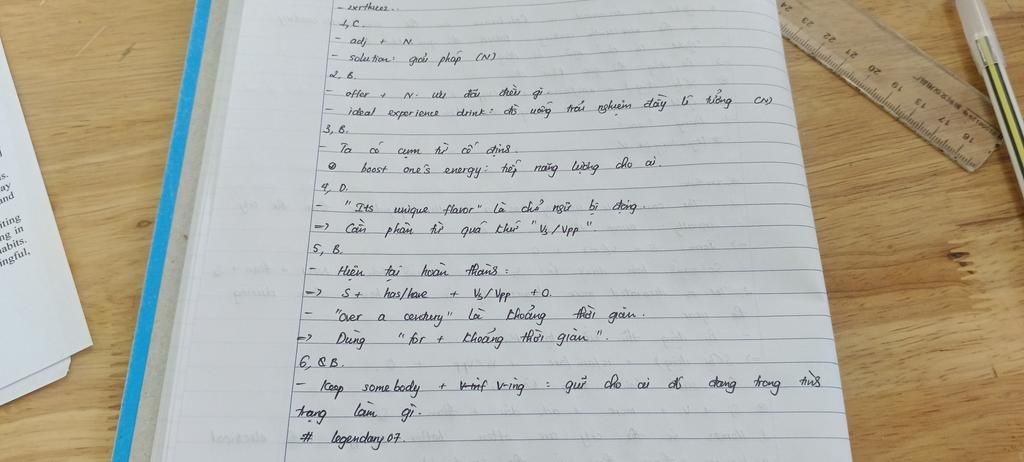 1, C.
- adj + N.
- solution: giải pháp (N)
2, B.
- offer + N: ưu đãi điều gì.
- ideal experience drink: đồ uống trải nghiệm đầy lí tưởng (N)
3, B.
- Ta có cụm từ cố định.
boost one's energy: tiếp năng lượng cho ai.
4, D.
- "Its unique flavor" là chủ ngữ bị động.
=> Cần phân từ quá khứ "V3/Vpp"
5, B.
- Hiện tại hoàn thành:
=> S + has/have + V3/Vpp + O.
- "Over a century" là khoảng thời gian.
=> Dùng "for + khoảng thời gian".
6, B.
- Keep somebody + V-inf V-ing: giữ cho ai đó đang trong tình
trạng làm gì.
# legendary07.
iting
g in
abits.
ngful,
s.
ay
and
24
23
22
21
20
19
18
17
16